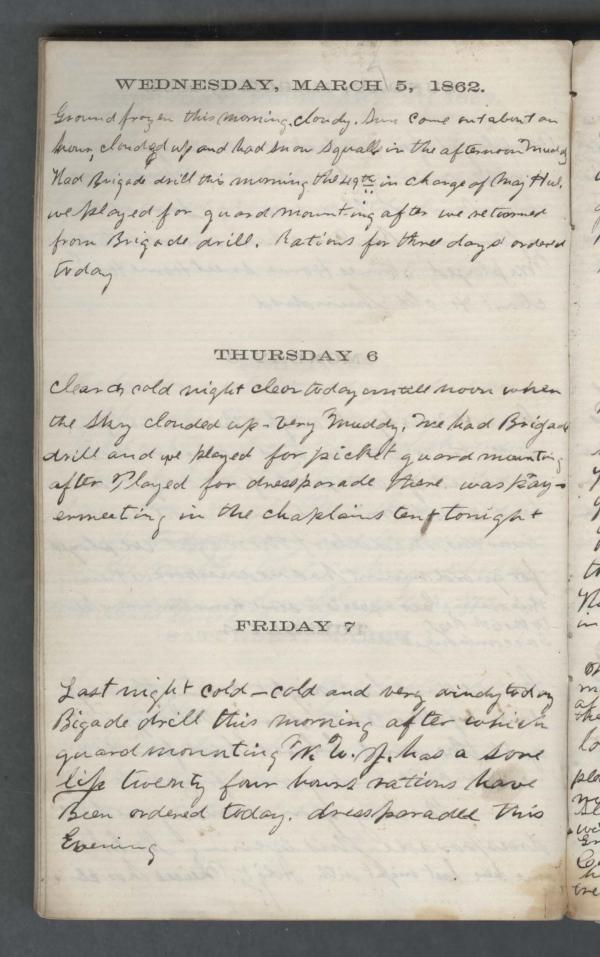 WEDNESDAY, MARCH 5, 1862.
Ground frozen this morning. cloudy. Sun come out about an
hour, clouded up and had snow squalls in the afternoon Muddy
Had Brigade drill this morning the 49th in charge of Maj Hul.
we played for guard mounting after we returned
from Brigade drill. Rations for three days ordered
today
THURSDAY 6
Clear & cold night clear today untill noon when
the sky clouded up - very Muddy, We had Brigade
drill and we played for picket guard mounting
after Played for dressparade there was Pray-
ermeeting in the chaplains tent tonight
FRIDAY 7
Last night cold - cold and very windy today
Bigade drill this morning after which
guard mounting W. W. J. has a sore
lip twenty four hours rations have
Been ordered today. dressparaded this
Evening